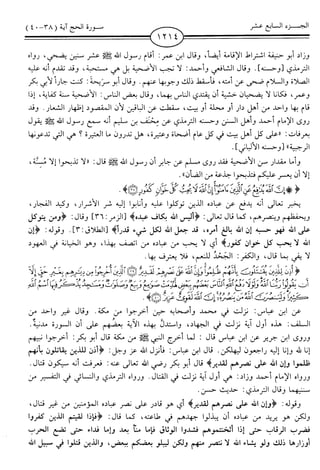 الجزء السابع عشر
سورة الحج آية (٣٨ - ٤٠)
١٢١٤
وزاد أبو حنيفة اشتراط الإقامة أيضاً، وقال ابن عمر: أقام رسول الله ﷺ عشر سنين يضحي، رواه
الترمذي [وحسنه]. وقال الشافعي وأحمد: لا تجب الأضحية بل هي مستحبة، وقد تقدم أنه عليه
الصلاة والسلام ضحى عن أمته، فأسقط ذلك وجوبها عنهم. وقال أبو سريحة: كنت جاراً لأبي بكر
وعمر، فكانا لا يضحيان خشية أن يقتدي الناس بهما، وقال بعض الناس: الأضحية سنة كفاية، إذا
قام بها واحد من أهل دار أو محلة أو بيت، سقطت عن الباقين لأن المقصود إظهار الشعار. وقد
روى الإمام أحمد وأهل السنن وحسنه الترمذي عن مخنف بن سليم أنه سمع رسول الله ﷺ يقول
بعرفات: «على كل أهل بيت في كل عام أضحاة وعتيرة، هل تدرون ما العتيرة ؟ هي التي تدعونها
الرجبية» [وحسنه الألباني].
وأما مقدار سن الأضحية فقد روى مسلم عن جابر أن رسول الله ﷺ قال: «لا تذبحوا إلا مُسنَّة،
إلا أن يعسر عليكم فتذبحوا جذعة من الضأن».
﴿۞ إِنَّ اللَّهَ يُدَافِعُ عَنِ الَّذِينَ ءَامَنُوا إِنَّ اللَّهَ لَا يُحِبُّ كُلَّ خَوَّانٍ كَفُورٍ ۝﴾.
يخبر تعالى أنه يدفع عن عباده الذين توكلوا عليه وأنابوا إليه شر الأشرار، وكيد الفجار،
ويحفظهم وينصرهم، كما قال تعالى: ﴿أليس الله بكاف عبده﴾ [الزمر: ٣٦] وقال: ﴿ومن يتوكل
على الله فهو حسبه إن الله بالغ أمره، قد جعل الله لكل شيء قدراً﴾ [الطلاق: ٣]. وقوله: ﴿إن
الله لا يحب كل خوان كفور﴾ أي لا يحب من عباده من اتصف بهذا، وهو الخيانة في العهود
لا يفي بما قال، والكفر: الجَحْدُ للنعم، فلا يعترف بها.
﴿أُذِنَ لِلَّذِينَ يُقَاتَلُونَ بِأَنَّهُمْ ظُلِمُوا وَإِنَّ اللَّهَ عَلَى نَصْرِهِمْ لَقَدِيرٌ ۝ الَّذِينَ أُخْرِجُوا مِن دِيَارِهِم بِغَيْرِ حَقٍّ إِلَّا
أَن يَقُولُوا رَبُّنَا اللَّهُ وَلَوْلَا دَفْعُ اللَّهِ النَّاسَ بَعْضَهُم بِبَعْضٍ لَّهُدِّمَتْ صَوَامِعُ وَبِيَعٌ وَصَلَوَاتٌ وَمَسَاجِدُ يُذْكَرُ فِيهَا اسْمُ اللَّهِ
كَثِيرًا وَلَيَنصُرَنَّ اللَّهُ مَن يَنصُرُهُ إِنَّ اللَّهَ لَقَوِيٌّ عَزِيزٌ ۝﴾.
عن ابن عباس: نزلت في محمد وأصحابه حين أخرجوا من مكة. وقال غير واحد من
السلف: هذه أول آية نزلت في الجهاد، واستدلّ بهذه الآية بعضُهم على أن السورة مدنيةٌ.
وروى ابن جرير عن ابن عباس قال : لما أخرج النبي ﷺ من مكة قال أبو بكر: أخرجوا نبيهم
إنا لله وإنا إليه راجعون ليهلكن. قال ابن عباس: فأنزل الله عز وجل: ﴿أذن للذين يقاتلون بأنهم
ظلموا وإن الله على نصرهم لقدير﴾ قال أبو بكر رضي الله تعالى عنه: فعرفت أنه سيكون قتال.
ورواه الإمام أحمد وزاد: هي أول آية نزلت في القتال. ورواه الترمذي والنسائي في التفسير من
سننيهما وقال الترمذي: حديث حسن.
وقوله: ﴿وإن الله على نصرهم لقدير﴾ أي هو قادر على نصر عباده المؤمنين من غير قتال،
ولكن هو يريد من عباده أن يبذلوا جهدهم في طاعته، كما قال: ﴿فإذا لقيتم الذين كفروا
فضرب الرقاب حتى إذا أثخنتموهم فشدوا الوثاق فإما منّاً بعد وإما فداء حتى تضع الحرب
أوزارها ذلك ولو يشاء الله لا نتصر منهم ولكن ليبلو بعضكم ببعض، والذين قتلوا في سبيل الله